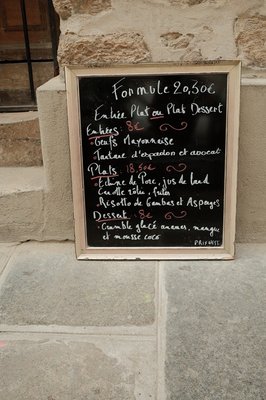 Formule 20,50€
Entrée Plat ou Plat Dessert
Entrées : 8€
• Oeufs Mayonnaise
• Tartare d'espadon et avocat
Plats : 18,50€
• Echine de Porc, jus de lard
Carotte rôtie, frites
• Risotto de Gambas et Asperges
Dessert : 8€
• Crumble glacé ananas, mangue
et mousse coco
PRIX NET